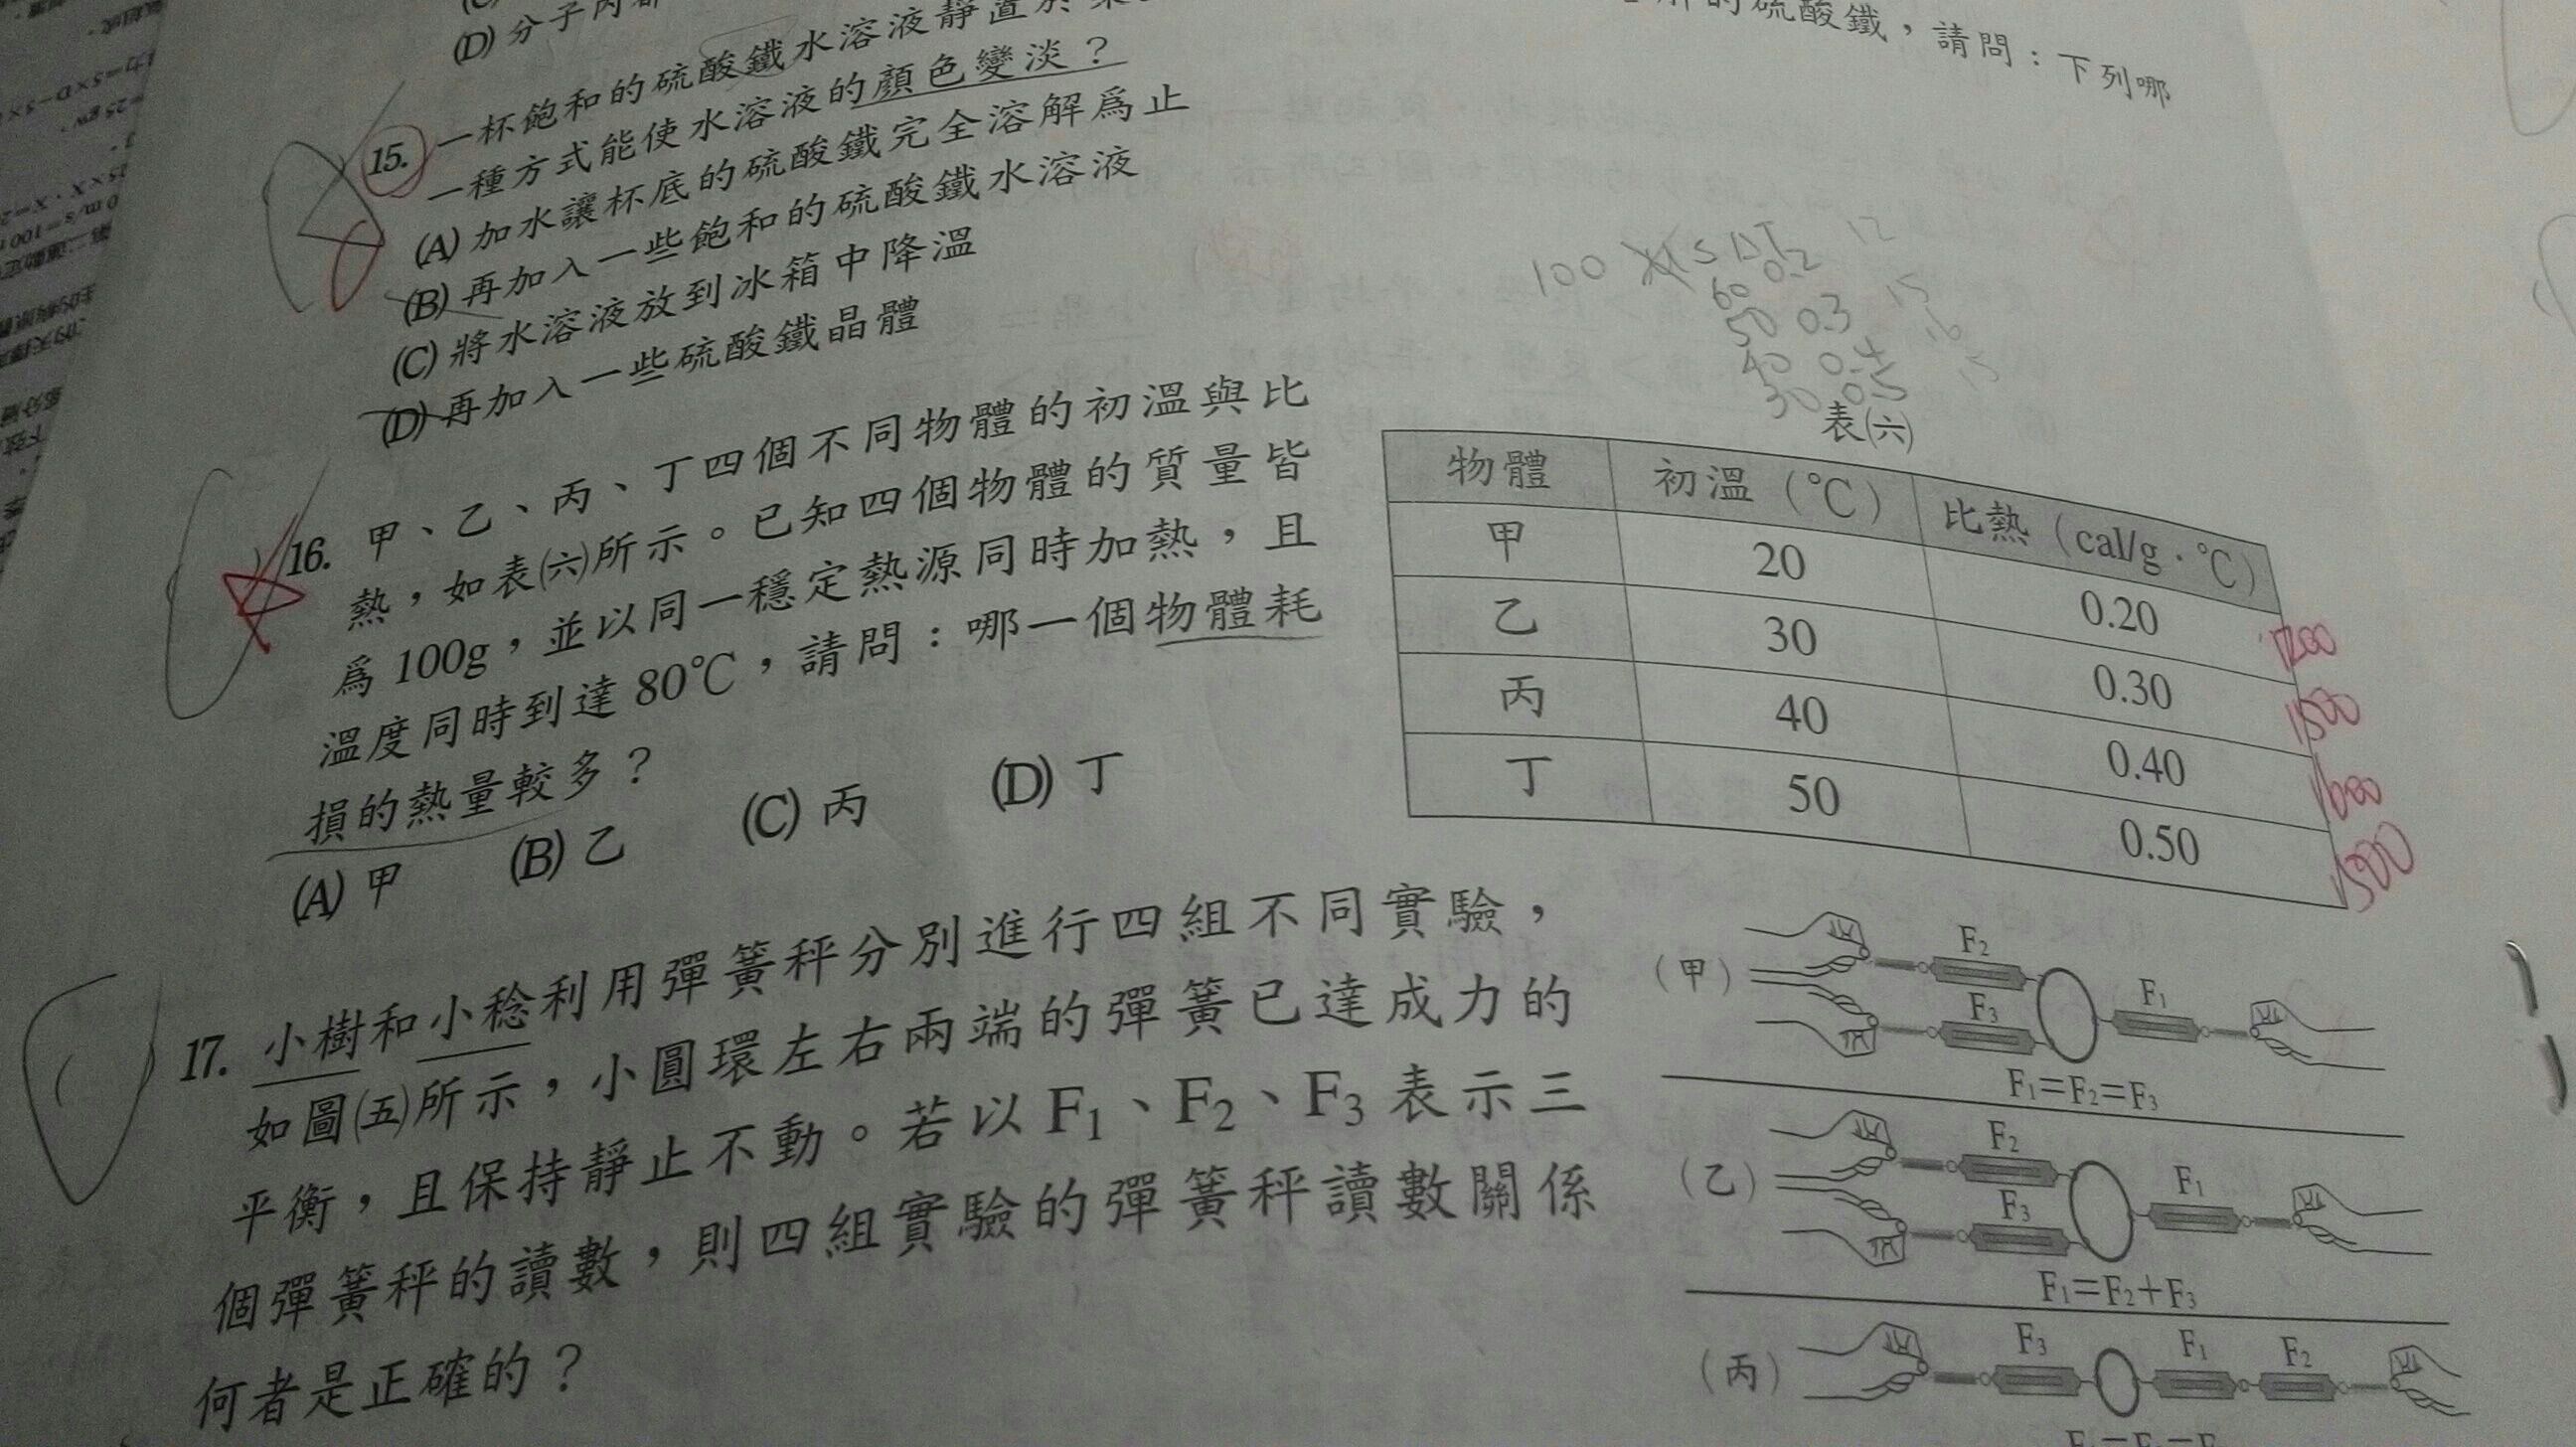 (D) 分子內部
15. 一杯飽和的硫酸鐵水溶液靜置於
的硫酸鐵，請問：下列哪
一種方式能使水溶液的顏色變淡？
(A) 加水讓杯底的硫酸鐵完全溶解爲止
(B) 再加入一些飽和的硫酸鐵水溶液
(C) 將水溶液放到冰箱中降溫
(D) 再加入一些硫酸鐵晶體
100 S ΔT
60 0.2 12
50 0.3 15
40 0.4 16
30 0.5 15
16. 甲、乙、丙、丁四個不同物體的初溫與比
熱，如表㈥所示。已知四個物體的質量皆
爲 100g，並以同一穩定熱源同時加熱，且
溫度同時到達 80℃，請問：哪一個物體耗
損的熱量較多？
(A) 甲 (B) 乙 (C) 丙 (D) 丁
表㈥
物體 初溫（℃） 比熱（cal/g．℃）
甲 20 0.20 1200
乙 30 0.30 1500
丙 40 0.40 1600
丁 50 0.50 1500
17. 小樹和小稔利用彈簧秤分別進行四組不同實驗，
如圖㈤所示，小圓環左右兩端的彈簧已達成力的
平衡，且保持靜止不動。若以 F1、F2、F3 表示三
個彈簧秤的讀數，則四組實驗的彈簧秤讀數關係
何者是正確的？
（甲）
F2
F3
F1
F1=F2=F3
（乙）
F2
F3
F1
F1=F2+F3
（丙）
F3
F1
F2